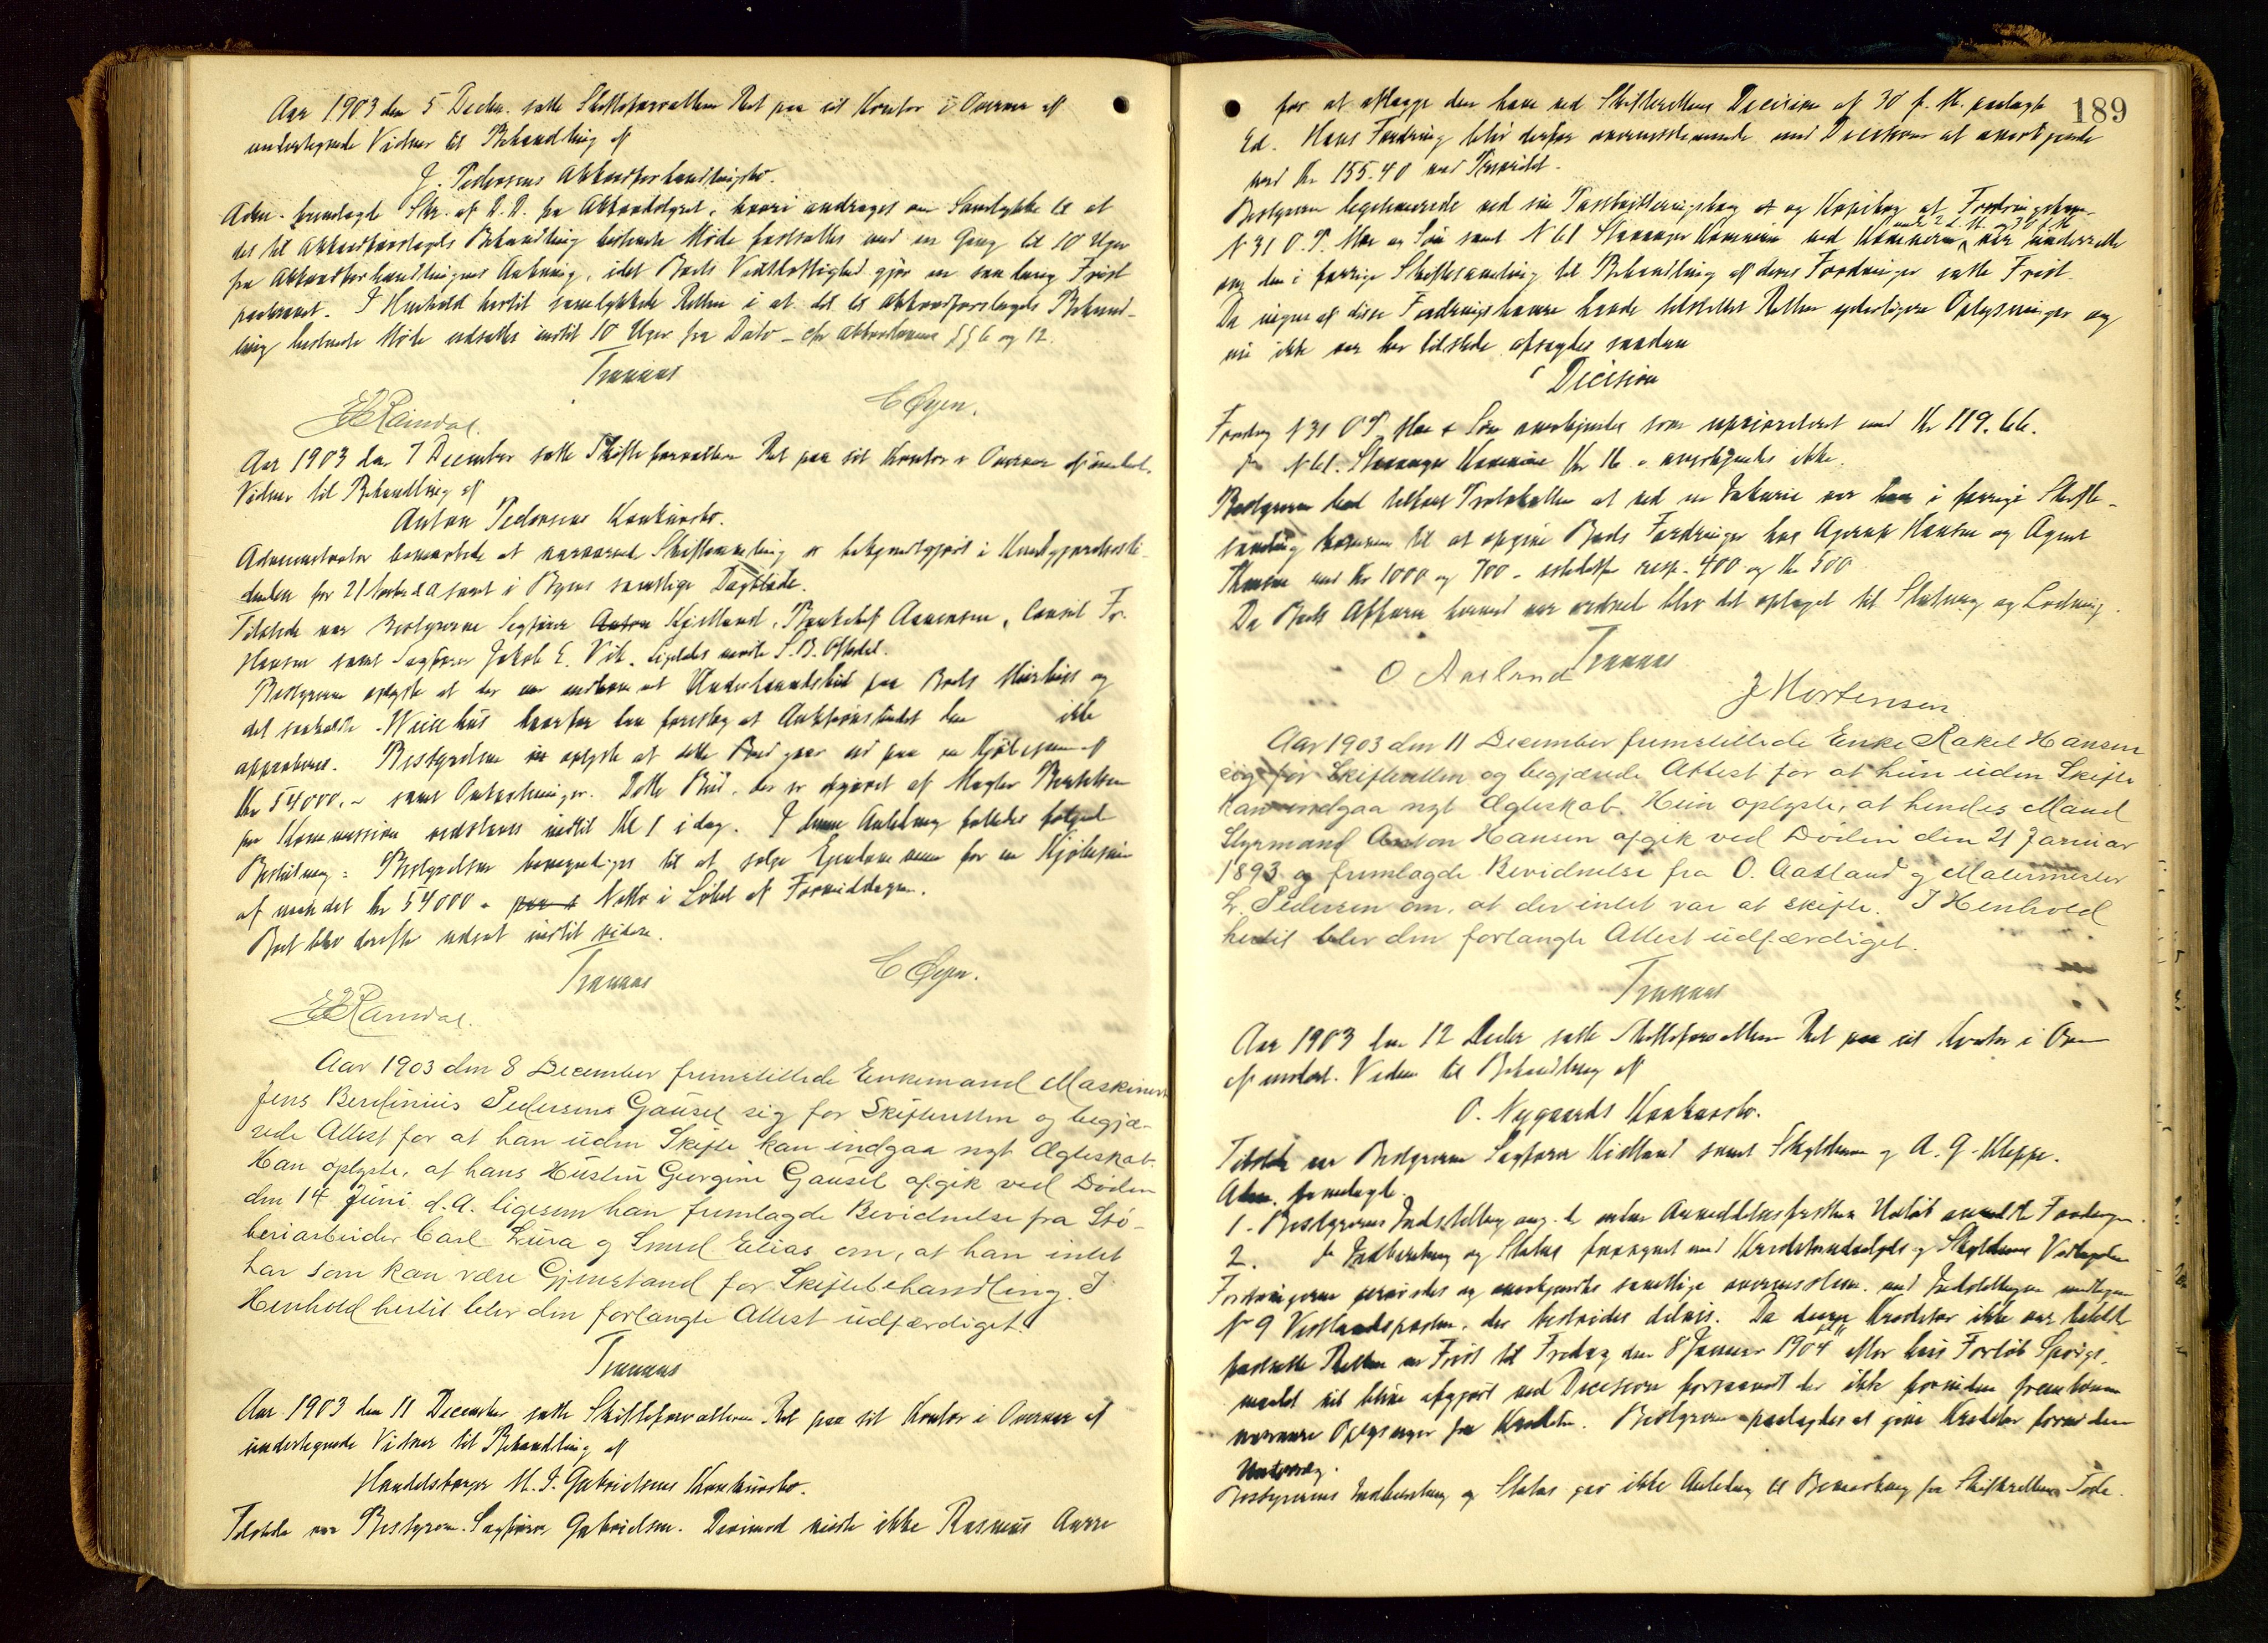 Aar 1903 den 5 Decbr. satte Skifteforvalteren Ret paa sit Kontor i Overvær af
undertegnede Vidner til Behandling af
J. Pedersens Akkordforhandlingsbo.
Adm. fremlagde Skr. af D.D. fra Akkordstyret, hvori andrages om Samtykke til at
det til Akkordforslagets Behandling bestemte Møde fastsættes med en Gang til 10 Uger
fra Akkordforhandlingens Aabning, idet Boets Vidtløftighed gjør en saa lang Frist
paakrævet. I Henhold hertil samtykkede Retten i at det til Akkordforslagets Behand-
ling bestemte Møde udsættes indtil 10 Uger fra Dato - cfr Akkordlovens §§ 6 og 12.
Tranaas
E Ramdal. C Øyen.
Aar 1903 den 7 December satte Skifteforvalteren Ret paa sit Kontor i Overvær af undert.
Vidner til Behandling af
Anton Pedersens Konkursbo.
Administrator bemærkede at nærværende Skiftesamling er bekjendtgjort i Kundgjørelsesti-
denden for 21 Novbr d.A. samt i Byens samtlige Dagblade.
Tilstede var Bestyrerne Sagfører Anton Kjelland, Bankchef Aanensen, Consul Fr.
Hansen samt Sagfører Jakob E. Vik. Ligeledes mødte S. B. Oftedal.
Bestyreren oplyste at der var indkommet Underhaandsbud paa Boets Murhus og
det saakaldte Weiehus hvorfor han foreslog at Auktionsbudet ikke
approberes. Bestyrelsen oplyste at dette Bud gaar ud paa en Kjøbesum af
Kr 54000,- samt Omkostninger. Dette Bud, der er afgivet af Megler Bertelsen
paa Kommission vedstaaes indtil Kl 1 i dag. I denne Anledning fattedes følgende
Beslutning: Bestyrelsen bemyndiges til at sælge Eiendommene for en Kjøbesum
af mindst Kr 54000 - Netto i Løbet af Formiddagen.
Boet blev derefter udsat indtil videre.
Tranaas C Øyen.
E Ramdal.
Aar 1903 den 8 December fremstillede Enkemand Maskinist
Jens Berdinius Pedersens Gausel sig for Skifteretten og begjæ-
rede Attest for at han uden Skifte kan indgaa nyt Ægteskab.
Han oplyste, at hans Hustru Georgine Gausel afgik ved Døden
den 14 Juni d.A. ligesom han fremlagde Bevidnelse fra Stø-
beriarbeider Carl Lura og Smed Elias om, at han intet
har som kan være Gjenstand for Skiftebehandling. I
Henhold hertil blev den forlangte Attest udfærdiget.
Tranaas
Aar 1903 den 11 December satte Skifteforvalteren Ret paa sit Kontor i Overvær af
undertegnede Vidner til Behandling af
Handelsborger M. S. Gabrielsens Konkursbo.
Tilstede var Bestyreren Sagfører Gabrielsen. Derimod mødte ikke Rasmus Aarre
189
for at aflægge den ham ved Skifterettens Decision af 30 f. M. paalagte
Ed. Hans Fordring blev derfor overensstemmende med Decisionen at anerkjende
med Kr 155.40 med Prioritet.
Bestyreren legitimerede ved sin Postkvitteringsbog og Kopibog at Fordringshaver
N 31 O. P. Moe og Søn samt N 61 Stavanger Kommune ved Kemneren var underrettet
om den i forrige Skiftesamling til Behandling af deres Fordringer satte Frist.
Da ingen af disse Fordringshavere havde tilstillet Retten yderligere Oplysninger og
nu ikke var her tilstede afsagdes saadan
Decision
Fordring N 31 O P Moe & Søn anerkjendes som uprioriteret med Kr 119.66.
do N 61. Stavanger Kommune Kr 16 - anerkjendes ikke.
Bestyreren bad tilført Protokollen at ved en Inkurie var han i forrige Skifte-
samling kommen til at opgive Boets Fordringer hos Agent Hansen og Agent
Thomsen med Kr 1000 og 700 - istedetfor resp. 400 og Kr 500
Da Boets Affærer hermed var ordnet blev det optaget til Slutning og Lodning.
Tranaas
O Aasland J Mortensen
Aar 1903 den 11 December fremstillede Enke Rakel Hansen
sig for Skifteretten og begjærede Attest for at hun uden Skifte
kan indgaa nyt Ægteskab. Hun oplyste, at hendes Mand
Styrmand Anton Hansen afgik ved Døden den 21 Januar
1893 og fremlagde Bevidnelse fra O. Aasland og Malermester
L. Pedersen om, at der intet var at skifte. I Henhold
hertil blev den forlangte Attest udfærdiget.
Tranaas
Aar 1903 den 12 Decbr satte Skifteforvalteren Ret paa sit Kontor i Overv
af undert. Vidner til Behandling af
O. Nygaards Konkursbo.
Tilstede var Bestyreren Sagfører Kielland samt Skyldneren og A. G. Kleppe.
Adm. fremlagde.
1. Bestyrerens Indstilling ang. de inden Anmeldelsesfristens Udløb anmeldte Fordringer.
2. do Indberetning og Status forsynet med Kreditorudvalgets og Skyldnerens Vedtagelse
Fordringerne prøvedes og anerkjendtes samtlige overensstem. med Indstillingen undtagen
No 9 Vestlandsposten, der bestrides delvis. Da denne Kreditor ikke var tilstede
fastsatte Retten en Frist til Fredag den 8 Januar 1904 efter hvis Forløb Spørgs-
maalet vil blive afgjort ved Decision forsaavidt der ikke forinden fremkommer
nærmere Oplysninger fra Kreditor. Bestyreren paalagdes at give Kreditor fornøden
Underretning.
Bestyrerens Indberetning og Status gav ikke Anledning til Bemærkning fra Skifterettens Side.